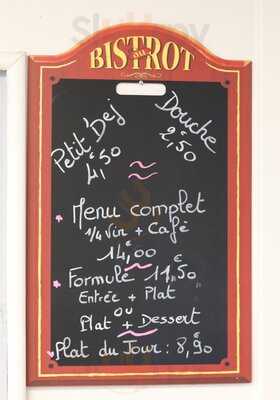 BISTROT
au
Petit Dej
4€50
Douche
2€50
Menu complet
1/4 Vin + Café
14€00
Formule 11€50
Entrée + Plat
ou
Plat + Dessert
Plat du Jour : 8€90